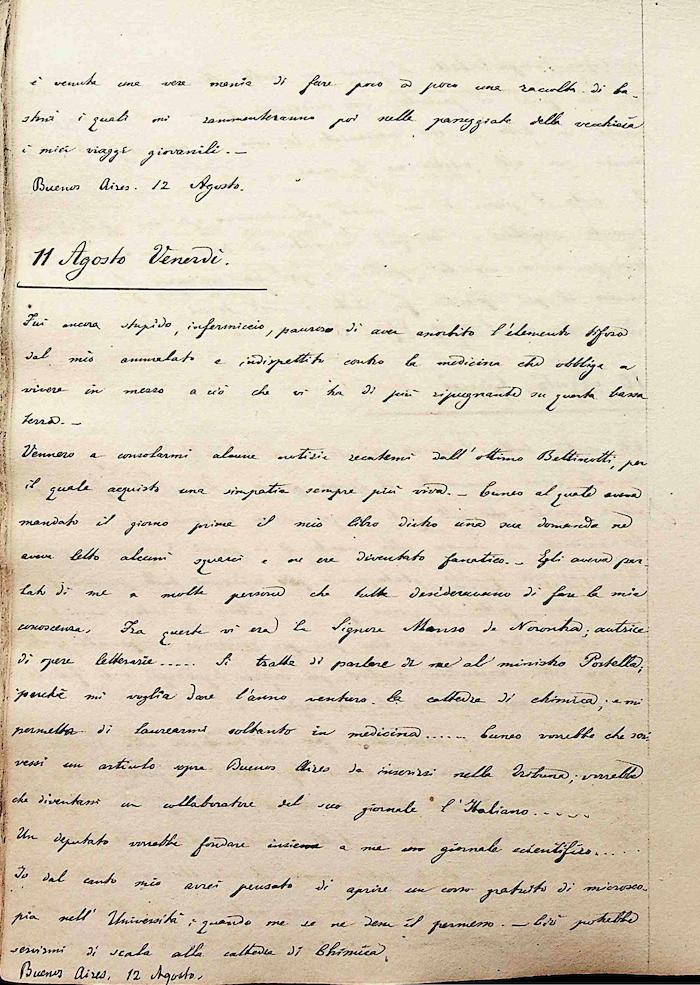 è venuta una vera mania di fare poco a poco una raccolta di ba-
stoni i quali mi rammenteranno poi nelle passeggiate della vecchiaia
i miei viaggi giovanili. —
Buenos Aires. 12 Agosto.
11 Agosto Venerdì.
Fui ancora stupido, infermiccio, pauroso di aver assorbito l'elemento tifoso
dal mio ammalato e indispettito contro la medicina che obbliga a
vivere in mezzo a ciò che vi ha di più ripugnante su questa bassa
terra. —
Vennero a consolarmi alcune notizie recatemi dall'ottimo Bettinotti, per
il quale acquisto una simpatia sempre più viva. — Cuneo al quale aveva
mandato il giorno prima il mio libro dietro una sua domanda ne
aveva letto alcuni squarci e ne era diventato fanatico. — Egli aveva par-
lato di me a molte persone che tutte desideravano di fare la mia
conoscenza. Fra queste vi era la Signora Manso de Noronha; autrice
di opere letterarie ..... Si tratta di parlare di me al ministro Portella;
perché mi voglia dare l'anno venturo la cattedra di chimica; e mi
permetta di laurearmi soltanto in medicina ...... Cuneo vorrebbe che scri-
vessi un articolo sopra Buenos Aires da inserirsi nella Tribuna; vorrebbe
che diventassi un collaboratore del suo giornale l'Italiano .....
Un deputato vorrebbe fondare insieme a me un giornale scientifico .....
Io dal canto mio avrei pensato di aprire un corso gratuito di microsco-
pia nell'Università; quando me se ne dia il permesso. — Ciò potrebbe
servirmi di scala alla cattedra di Chimica.
Buenos Aires, 12 Agosto.